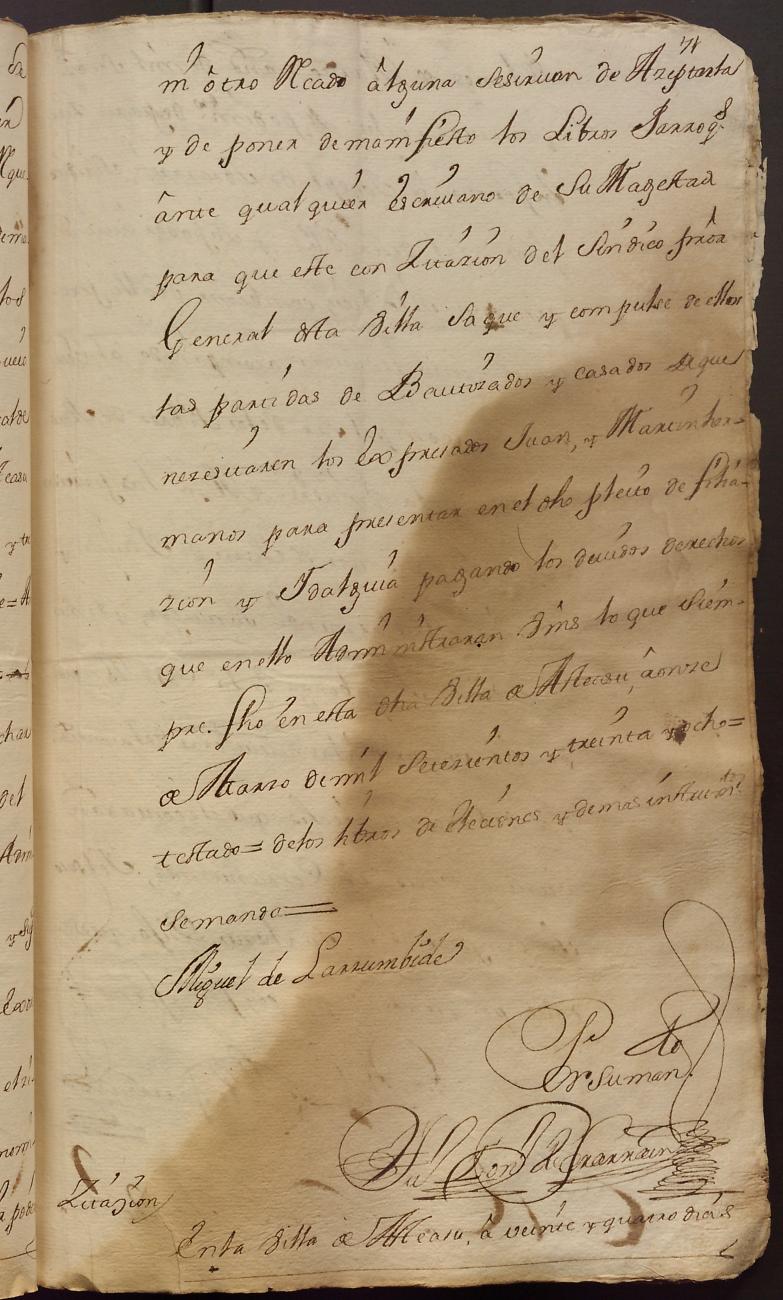 ni ôtro Rcado âlguna se siruan de Azeptarla
y de poner de manifiesto los Libros Parroqs
ânte qualquier escriuano de Su Magestad
para que este con Zitazion del Sindico pror
General desta Villa saque y compulse de ellos
las partidas de Bautizados y casados de que
nezesitaren los Expresados Juan, y Martin her=
manos para presentar en el dho pleito de filia-
zion y Idalguia pagando los deuidos derechos
que en ello Administraran Vms lo que siem-
pre. fho en esta dha Villa de Alteasu, â onze
de Marzo de mil Setezientos y treinta y ocho=
testado= de los libros de eleciones y demas instrumtos
Semanda=
Miguel de Larrumbide
Pr su man.
Zitazion
En la Villa de Alteasu, â veinte y quatro dias